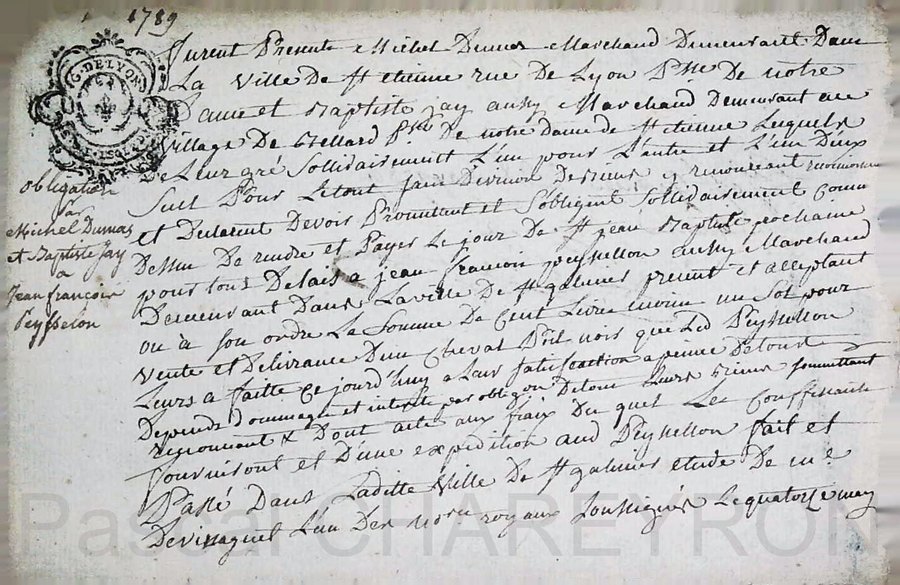 1789
G. DE LYON
obligation
par
Michel Dumas
et Baptiste Jay
a
Jean françois
Peysselon
furent Presents Michel Dumas Marchand Demeurant Dans
La Ville De St etienne rue De Lyon Psse De notre
Dame et Baptiste jay aussy Marchand Demeurant au
village De Psse De notre Dame de St etienne Lequels
De Leur gré Sollidairement L'un pour L'autre et L'un D'eux
Seul Pour Letout sans Division Dessus y renonceant
et Declarent Devoir Promettent et S'obligent Sollidairement comme
Dessus De rendre et Payer Le jour De St jean Baptiste prochaine
pour tous Delais a jean françois peyssellon aussy Marchand
Demeurant Dans La ville De St galmier present et acceptant
ou à son ordre La Somme De Cent Livre un Sol pour
Vente et Delivrance D'un Cheval Poil nois que Led Peyssellon
Leurs a faitte ce jourd'huy a Leur Satisfaction a peine De tous
Depends Dommage et interets par obligon De tous Leurs Biens soumettant
renonceant & Dont acte aux fraix Du quel Les Confessants
fourniront et D'une expedition aud Peyssellon fait et
Passé Dans Laditte Ville De St galmier etude De me
L'un Des nores royaux Soussignés Le quatorze may
Pascal CHAREYRON